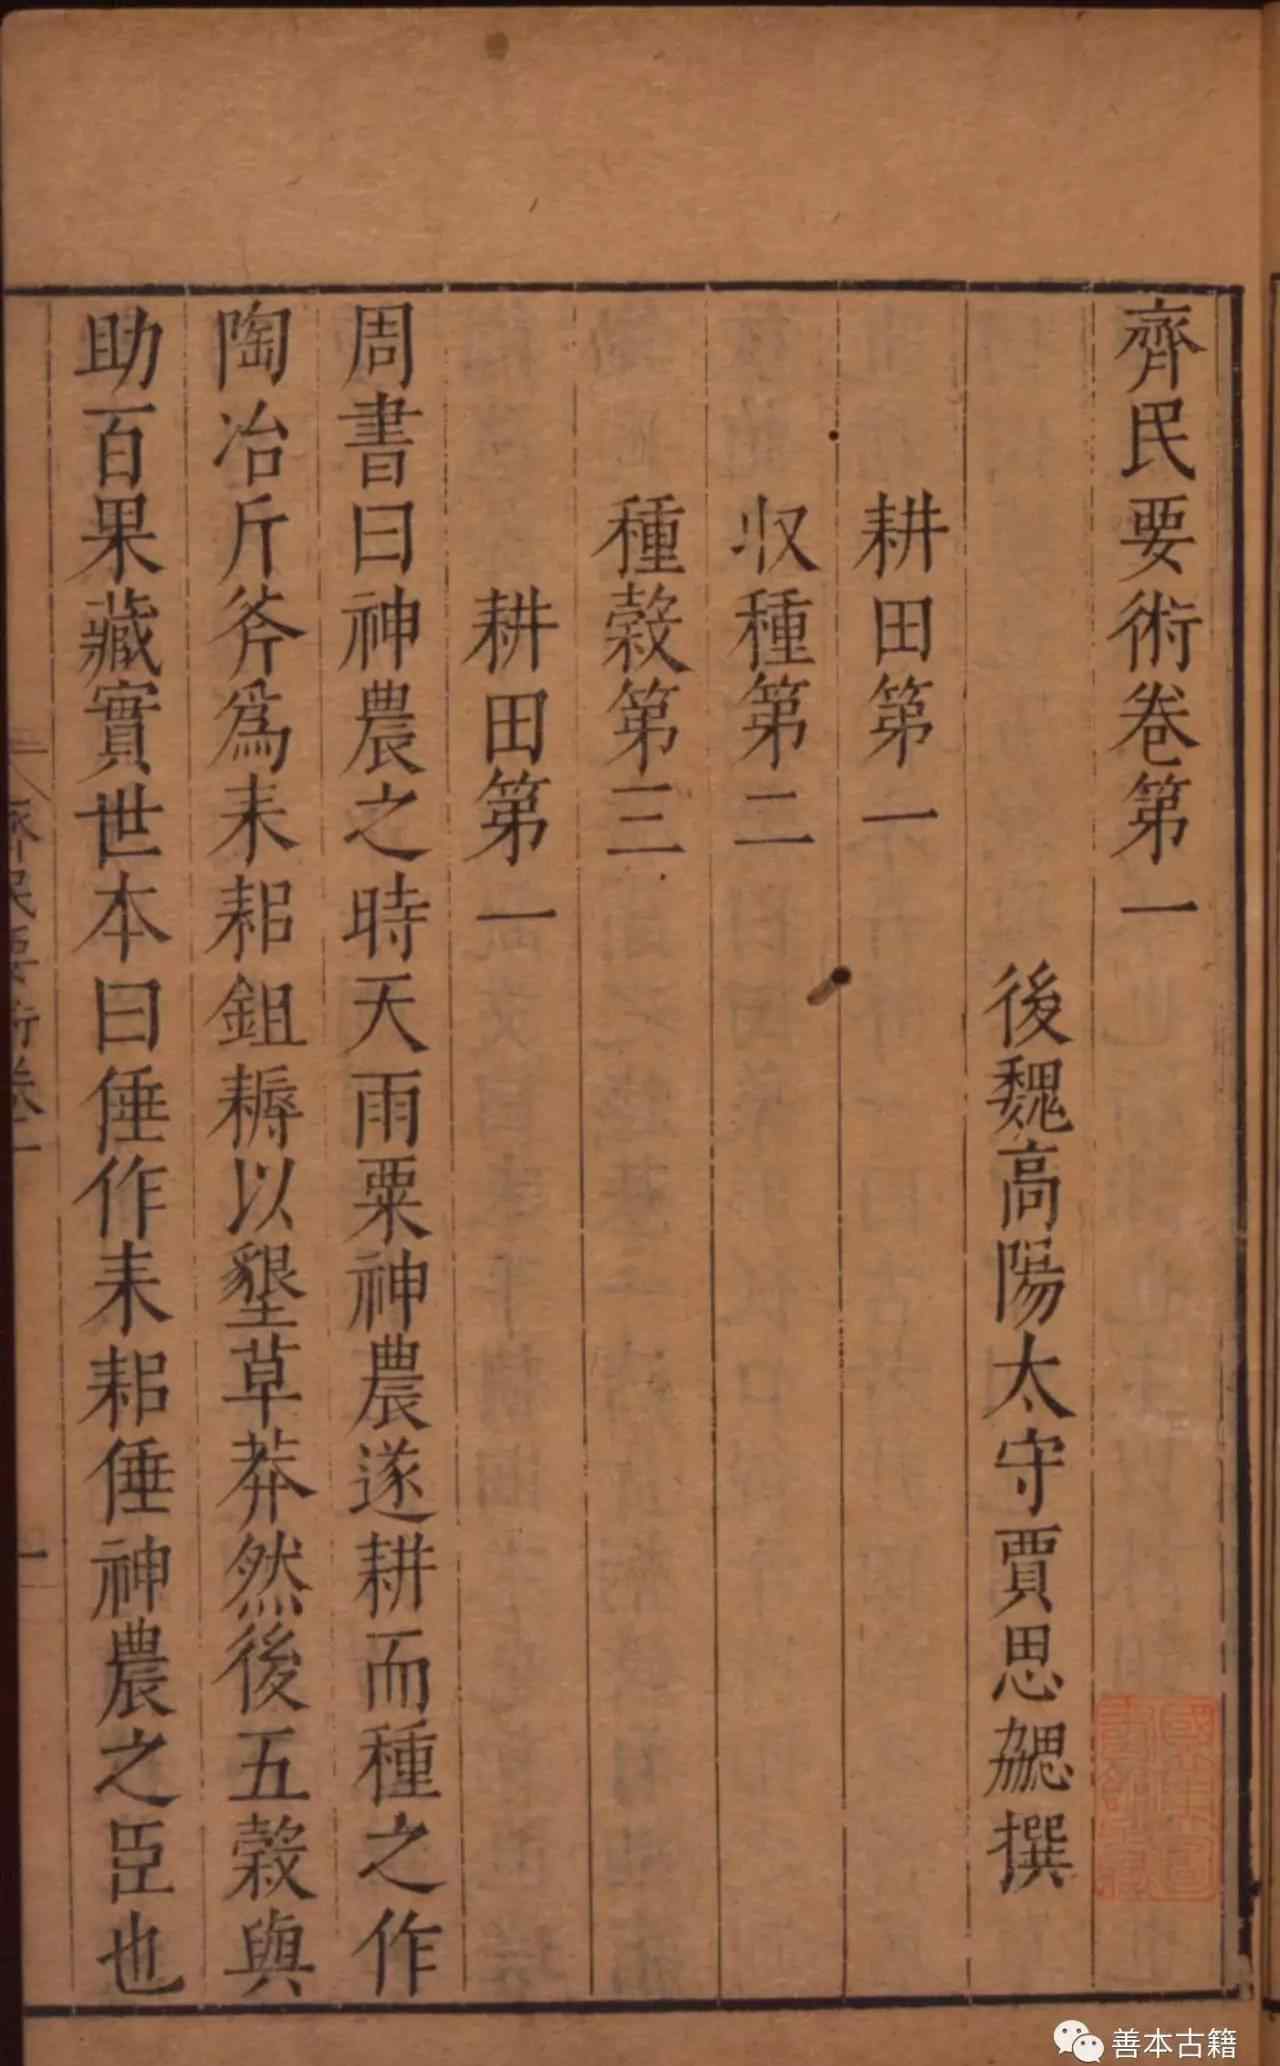 齊民要術卷第一
後魏高陽太守賈思勰撰
耕田第一
収種第二
種穀第三
耕田第一
周書曰神農之時天雨粟神農遂耕而種之作
陶冶斤斧爲耒耜鉏耨以墾草莽然後五穀與
助百果藏實世本曰倕作耒耜倕神農之臣也
善本古籍